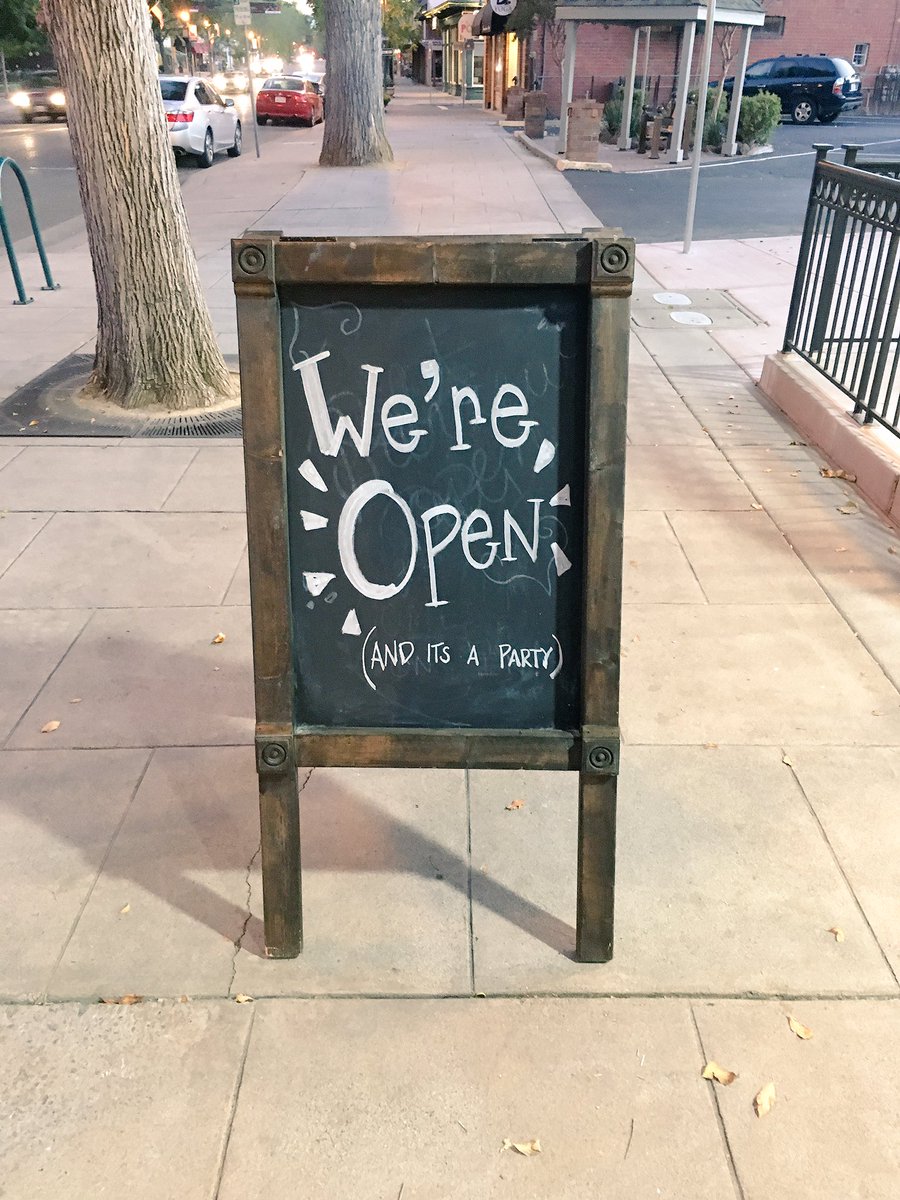 We're
Open
(AND ITS A PARTY)